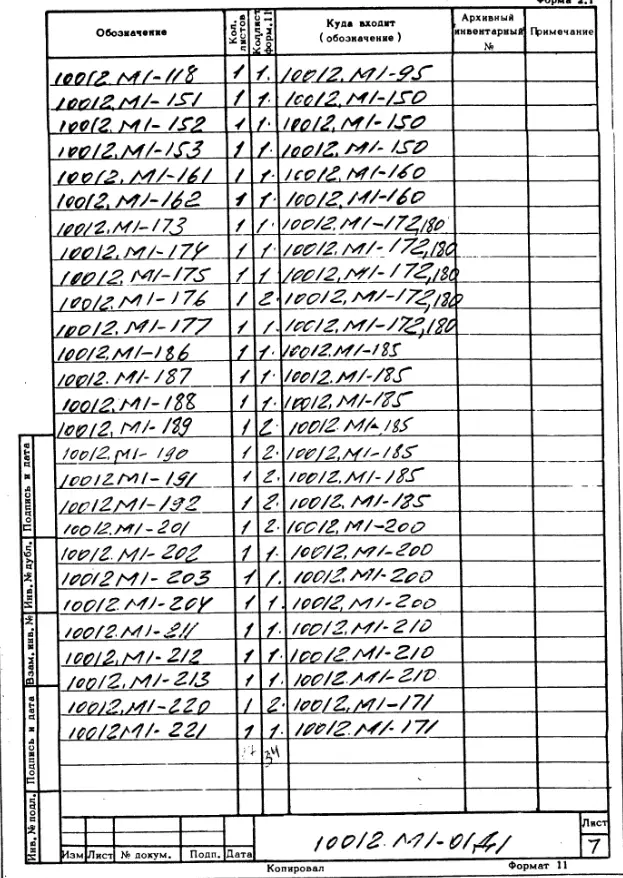 Форма 2.1
Обозначение Кол. листов Кол.лист форм.11 Куда входит (обозначение) Архивный инвентарный № Примечание
10012.М1-118 1 1. 10012.М1-95
10012.М1-151 1 1. 10012.М1-150
10012.М1-152 1 1. 10012.М1-150
10012.М1-153 1 1. 10012.М1-150
10012.М1-161 1 1. 10012.М1-160
10012.М1-162 1 1. 10012.М1-160
10012.М1-173 1 1. 10012.М1-172,180
10012.М1-174 1 1. 10012.М1-172,180
10012.М1-175 1 1 10012.М1-172,180
10012.М1-176 1 2. 10012.М1-172,180
10012.М1-177 1 1. 10012.М1-172,180
10012.М1-186 1 1. 10012.М1-185
10012.М1-187 1 1. 10012.М1-185
10012.М1-188 1 1. 10012.М1-185
10012.М1-189 1 2 10012.М1-185
10012.М1-190 1 2. 10012.М1-185
10012М1-191 1 2. 10012.М1-185
10012М1-192 1 2. 10012.М1-185
10012.М1-201 1 2. 10012.М1-200
10012.М1-202 1 1. 10012.М1-200
10012М1-203 1 1. 10012.М1-200
10012.М1-204 1 1. 10012.М1-200
10012.М1-211 1 1. 10012.М1-210
10012.М1-212 1 1. 10012.М1-210
10012.М1-213 1 1. 10012.М1-210
10012.М1-220 1 2. 10012.М1-171
10012М1-221 1 1. 10012.М1-171
34
Подпись и дата
Инв.№ дубл.
Взам. инв.№
Подпись и дата
Инв.№ подл.
Изм Лист № докум. Подп. Дата
10012.М1-01Д1
Лист
7
Копировал Формат 11